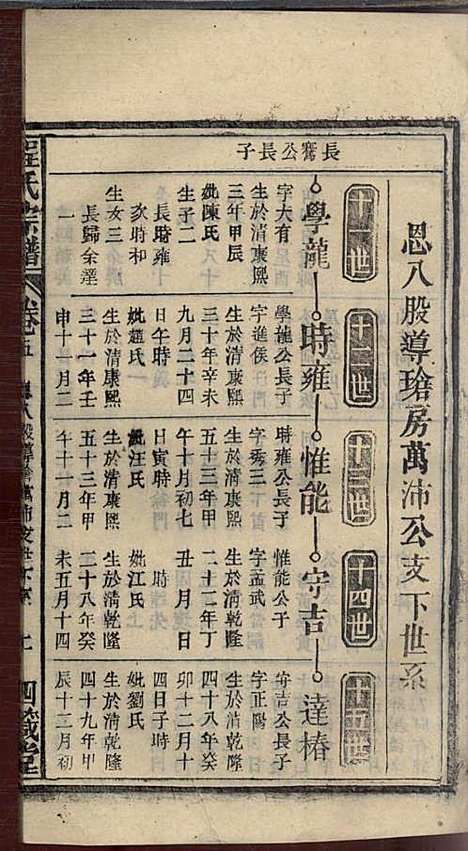 恩八股導瑲房萬沛公支下世系
十一世
十二世
十三世
十四世
十五世
長鶱公長子
學龍
時雍
惟能
守吉
達椿
字大有
生於清康熙
三年甲辰
妣陳氏
生子二
長時雍
次時和
生女三
長歸余達
一
學龍公長子
字進侯
生於清康熙
三十年辛未
九月二十四
日午時
妣趙氏
生於清康熙
三十一年壬
申十一月二
時雍公長子
字秀三
生於清康熙
五十三年甲
午十月初七
日寅時
妣汪氏
生於清康熙
五十三年甲
午十一月二
惟能公子
字孟武
生於清乾隆
二十二年丁
丑月日
妣江氏
生於清乾隆
二十八年癸
未五月十四
守吉公長子
字正陽
生於清乾隆
四十八年癸
卯十二月十
四日子時
妣劉氏
生於清乾隆
四十九年甲
辰十二月初
氏宗譜
卷五
四箴堂